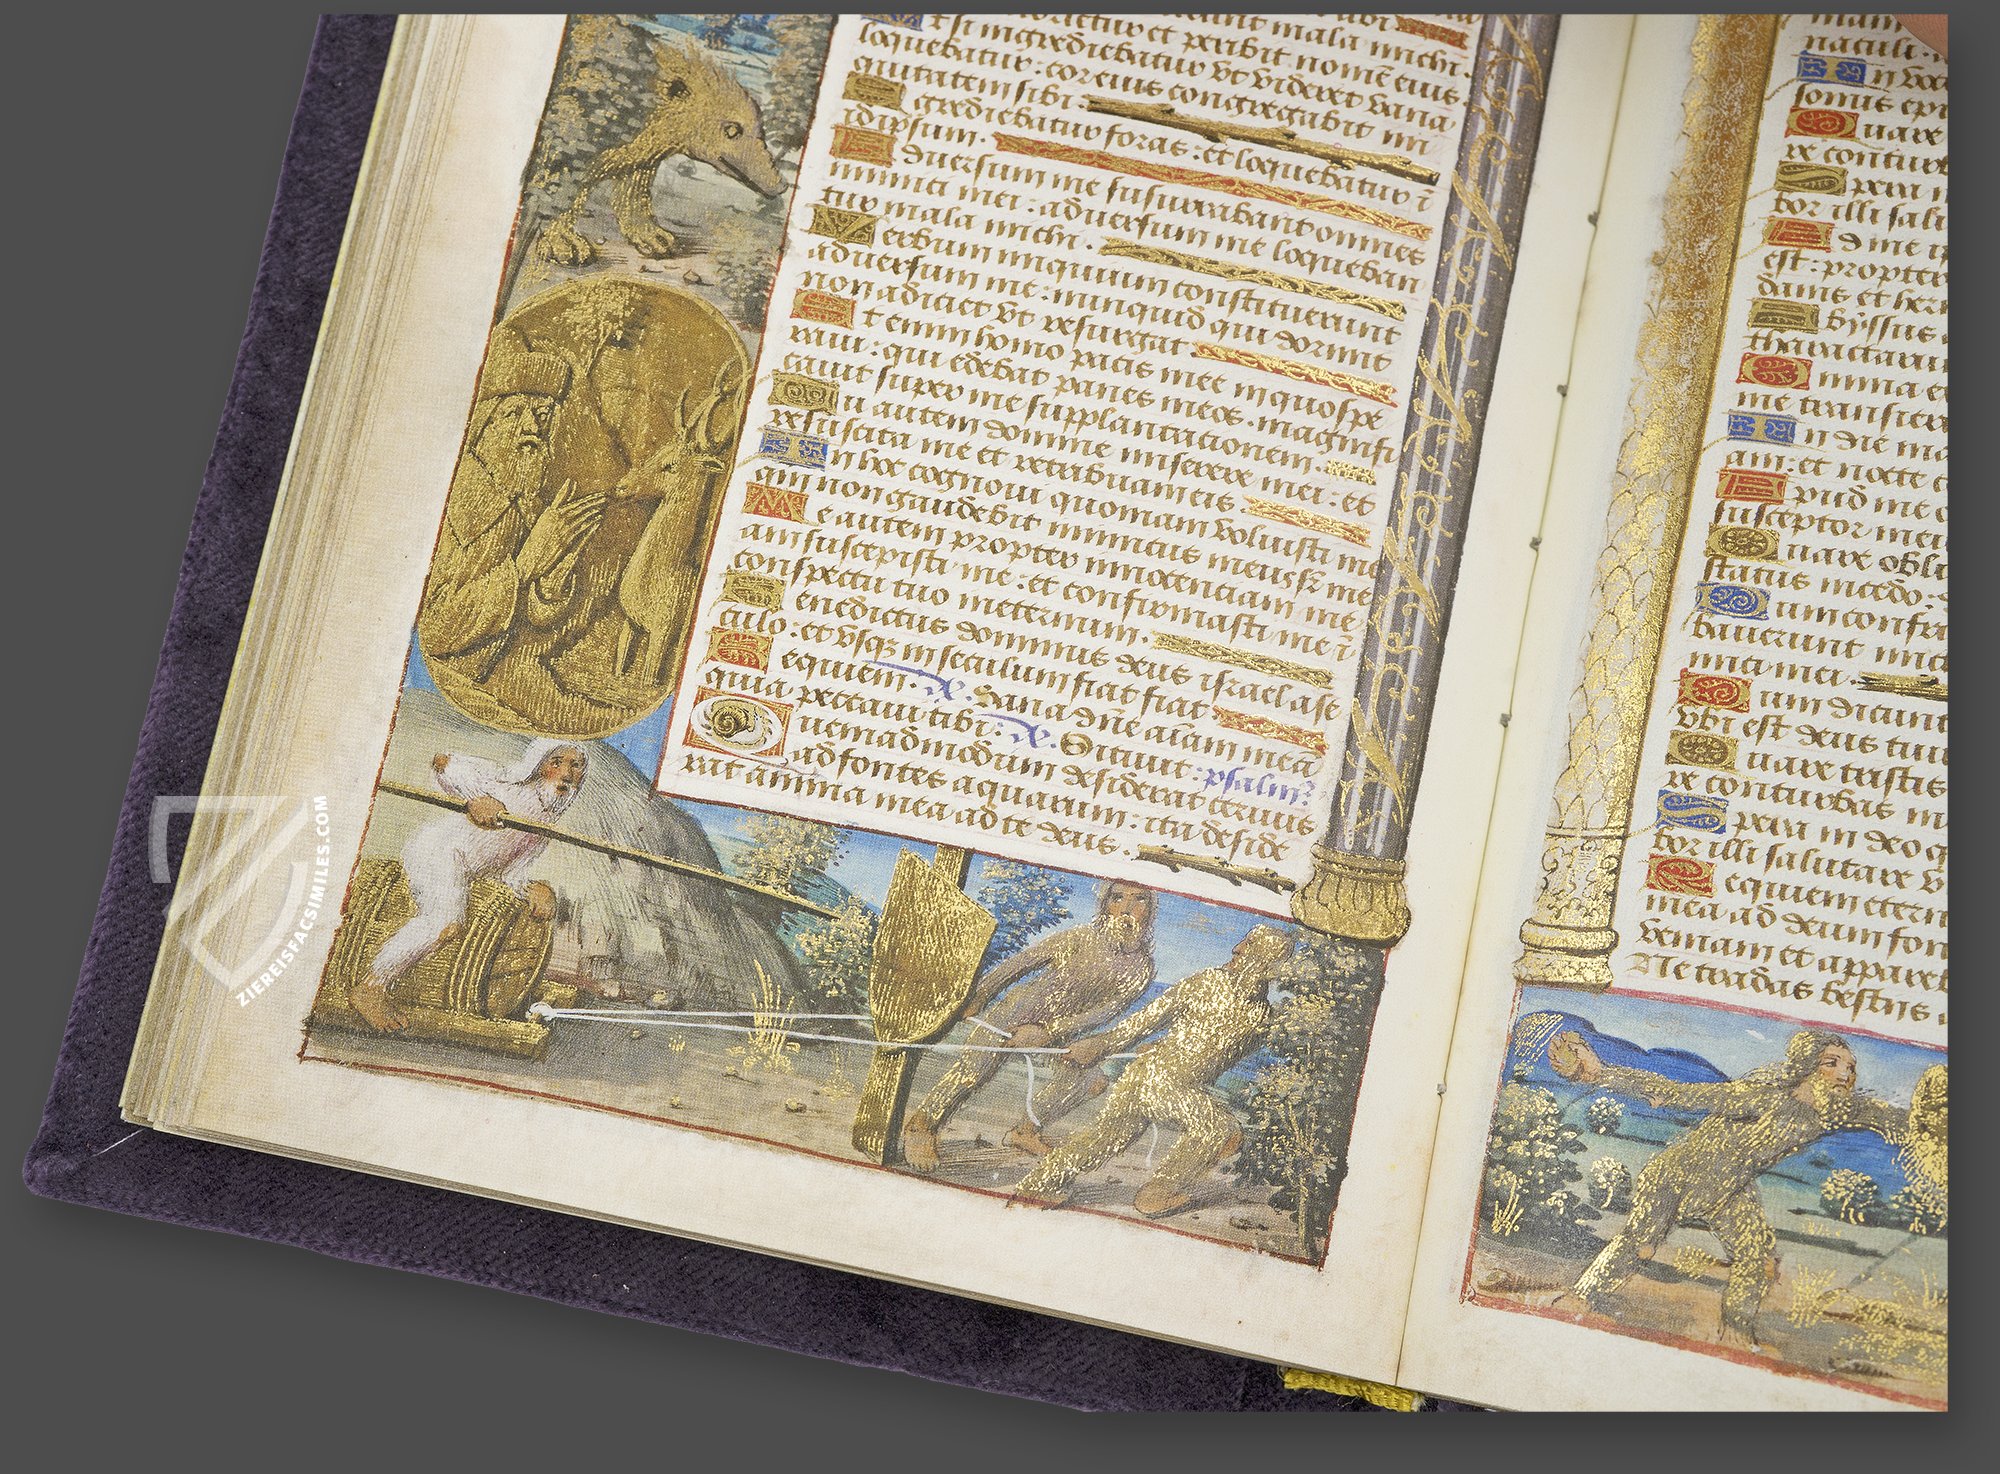 loquebatur: cor eius congregabit ini
quitatem sibi.
Egrediebatur foras: et loquebatur ī
idipsum.
Adversum me susurrabant omnes
inimici mei: adversum me loqueban
tur mala michi.
Verbum iniquum constituerunt
adversum me: nunquid qui dormit
non adiciet ut resurgat
Etenim homo pacis mee in quo spe
ravi: qui edebat panes meos. magnifi
cavit super me supplantationem.
Tu autem domine miserere mei: et
resuscita me et retribuam eis.
In hoc cognovi quoniam voluisti me
qm̄ non gaudebit inimicus meus sr̄ me
Me autem propter innocentiam me
am suscepisti me: et confirmasti me ī
conspectu tuo in eternum.
Benedictus dominus deus israel a se
culo: et usq; in seculum fiat fiat
Requiem. v. Sana dn̄e aīam meā
quia peccavi tibi: v. Sitivit: psalm9
Quemadmodum desiderat cervus
ad fontes aquarum: ita deside
rat anima mea ad te deus.
Quare
Spera
bor illi salu
est: propter
Abyssus
me transier
In dn̄e
am: et nocte
Apud me
susceptor mei
Quare obli
Dum confri
mici mei.
Dum dicunt
ubi est deus tuu
Quare tristis
re conturbas m
Spera in deo
bor illi salutare v
Requiem etern
mea ad deum fon
veniam et appareb
Ne tradas bestiis
ZIEREISFACSIMILES.COM